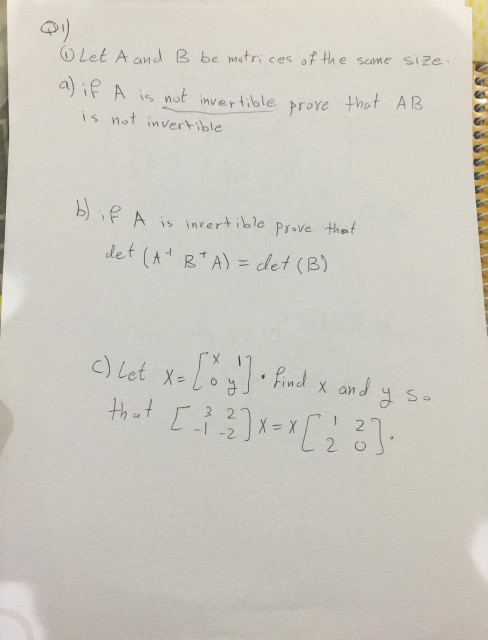 Q1)
① Let A and B be matrices of the same size.
a) if A is not invertible prove that AB
is not invertible
b) if A is invertible prove that
det (A⁻¹ Bᵀ A) = det (B)
c) Let X = [x 1; 0 y]. find x and y so
that [3 2; -1 -2] X = X [1 2; 2 0].